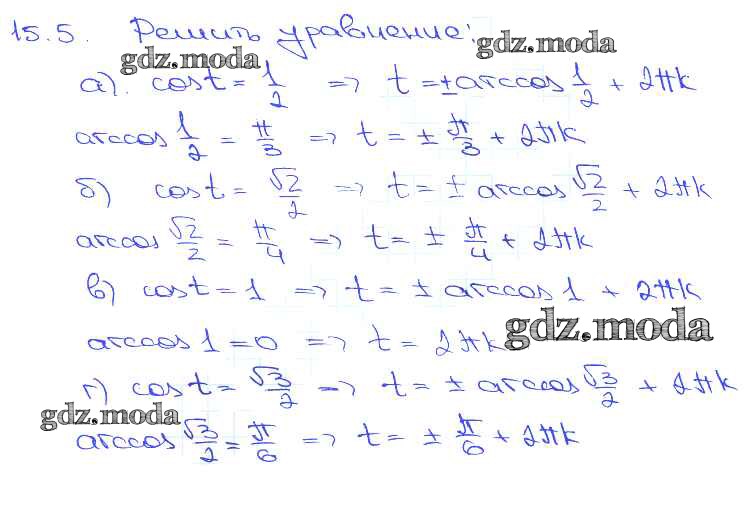 15.5. Решить уравнение:
gdz.moda gdz.moda
а). cos t = 1/2 => t = ± arccos 1/2 + 2πk
arccos 1/2 = π/3 => t = ± π/3 + 2πk
б) cos t = √2/2 => t = ± arccos √2/2 + 2πk
arccos √2/2 = π/4 => t = ± π/4 + 2πk
в) cos t = 1 => t = ± arccos 1 + 2πk
arccos 1 = 0 => t = 2πk
gdz.moda
г) cos t = √3/2 => t = ± arccos √3/2 + 2πk
gdz.moda
arccos √3/2 = π/6 => t = ± π/6 + 2πk